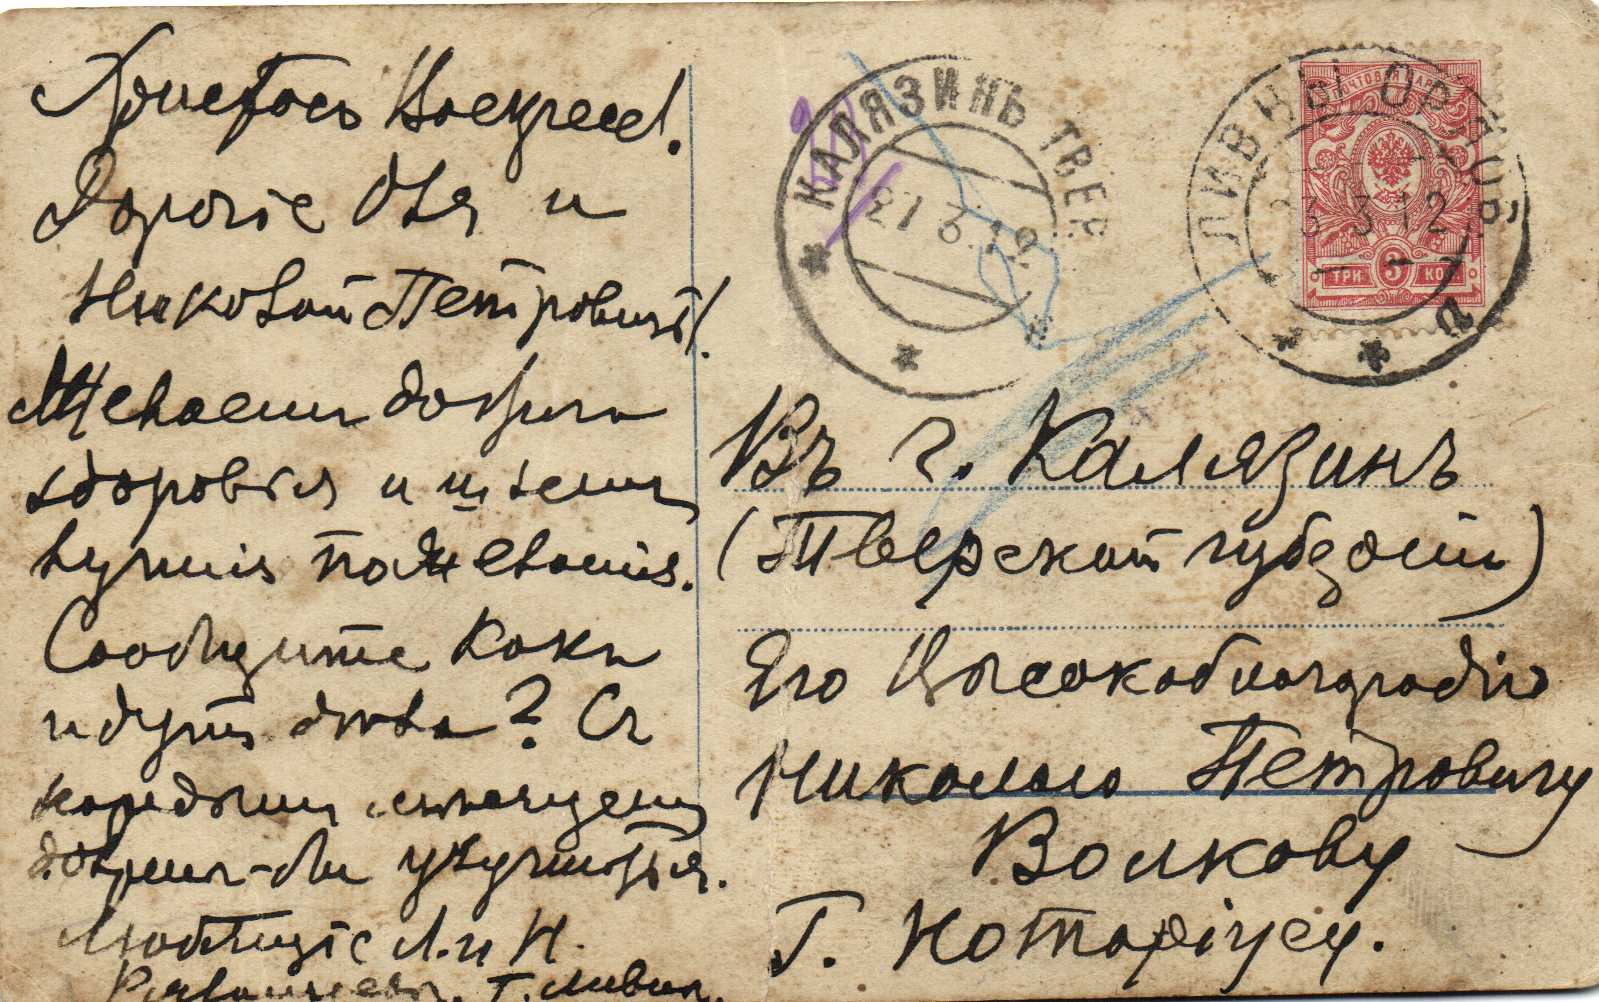 Христосъ Воскресе!
Дорогіе Оля и
Николай Петровичъ!
Желаемъ добраго
здоровія и шлемъ
лучшія пожеланія.
Сообщите какъ
идутъ дѣла? Съ
каждымъ мѣсяцемъ
должны-бы улучшаться.
Любящіе Л. и Н.
Г. Ливны.
КАЛЯЗИНЪ ТВЕР
21 3 12
ЛИВНЫ ОРЛОВ.
3 3 12
ПОЧТОВАЯ МАРКА
ТРИ 3 КОП
Въ г. Калязинъ
(Тверской губерніи)
Его Высокоблагородію
Николаю Петровичу
Волкову
Г. Нотаріусу.